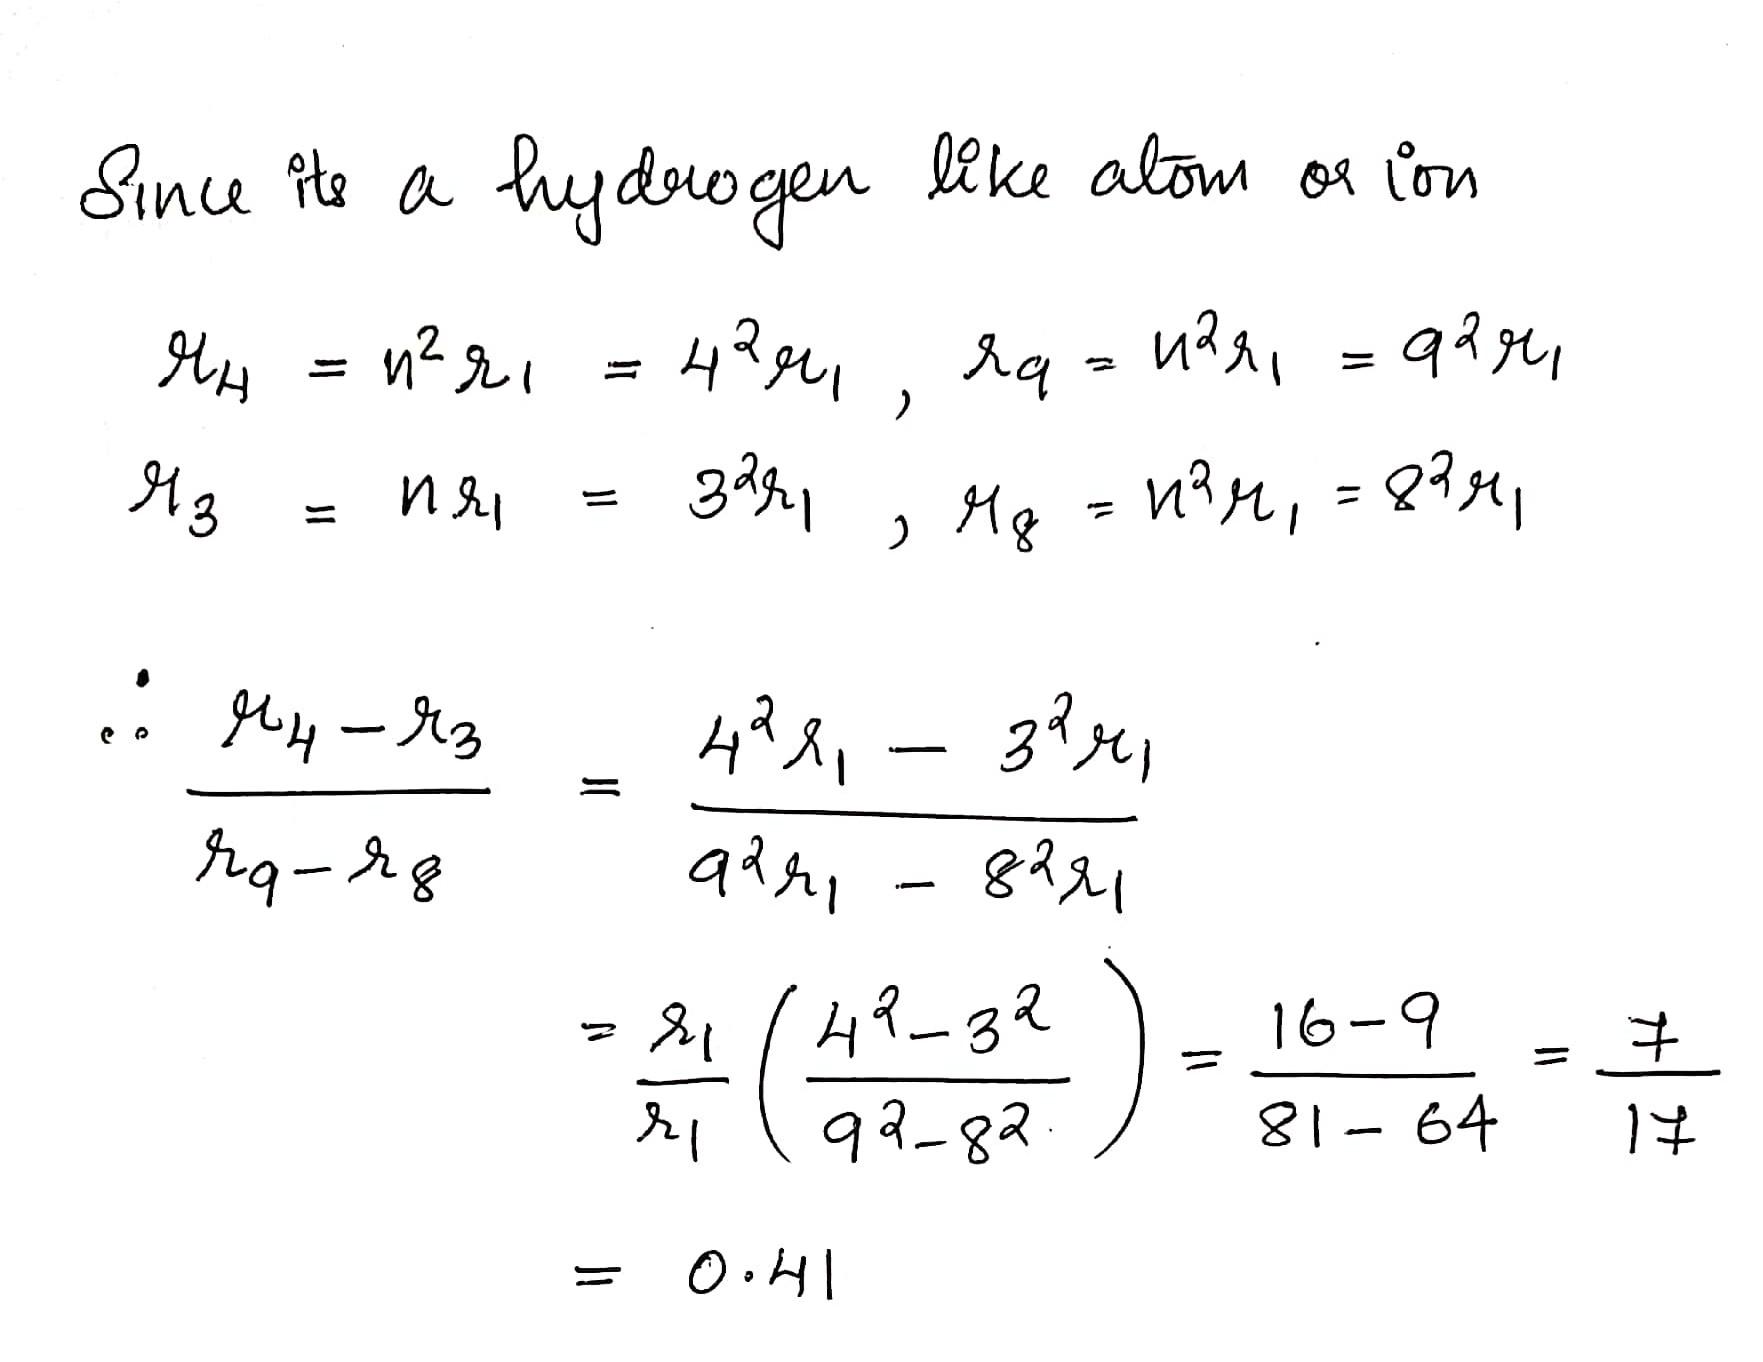 Since its a hydrogen like atom or ion
r₄ = n² r₁ = 4² r₁ , r₉ = n² r₁ = 9² r₁
r₃ = n r₁ = 3² r₁ , r₈ = n² r₁ = 8² r₁
∴ (r₄ – r₃) / (r₉ – r₈) = (4² r₁ – 3² r₁) / (9² r₁ – 8² r₁)
= r₁/r₁ ( (4² – 3²) / (9² – 8²) ) = (16 – 9) / (81 – 64) = 7/17
= 0.41